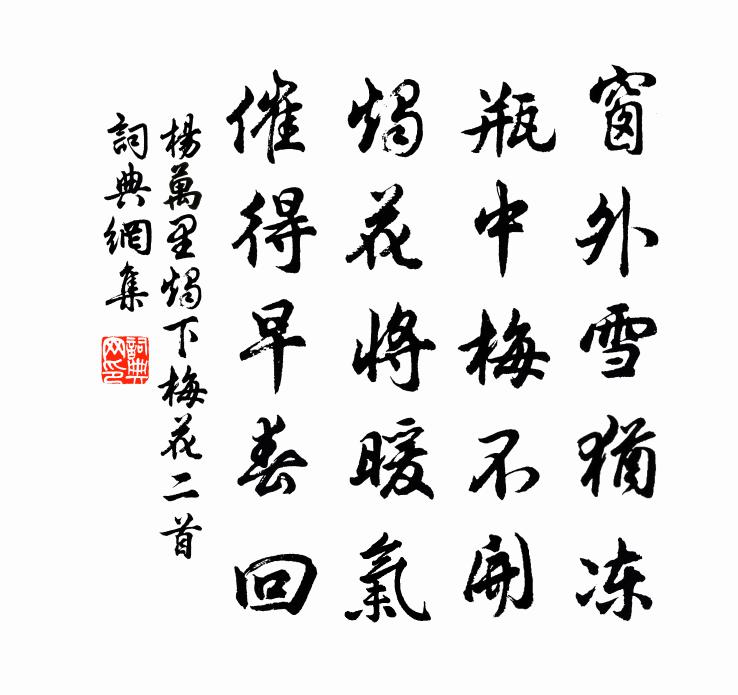 窗外雪猶冻
瓶中梅不開
燭花將暖氣
催得早春回
楊萬里燭下梅花二首
詞典網集
詞典网印